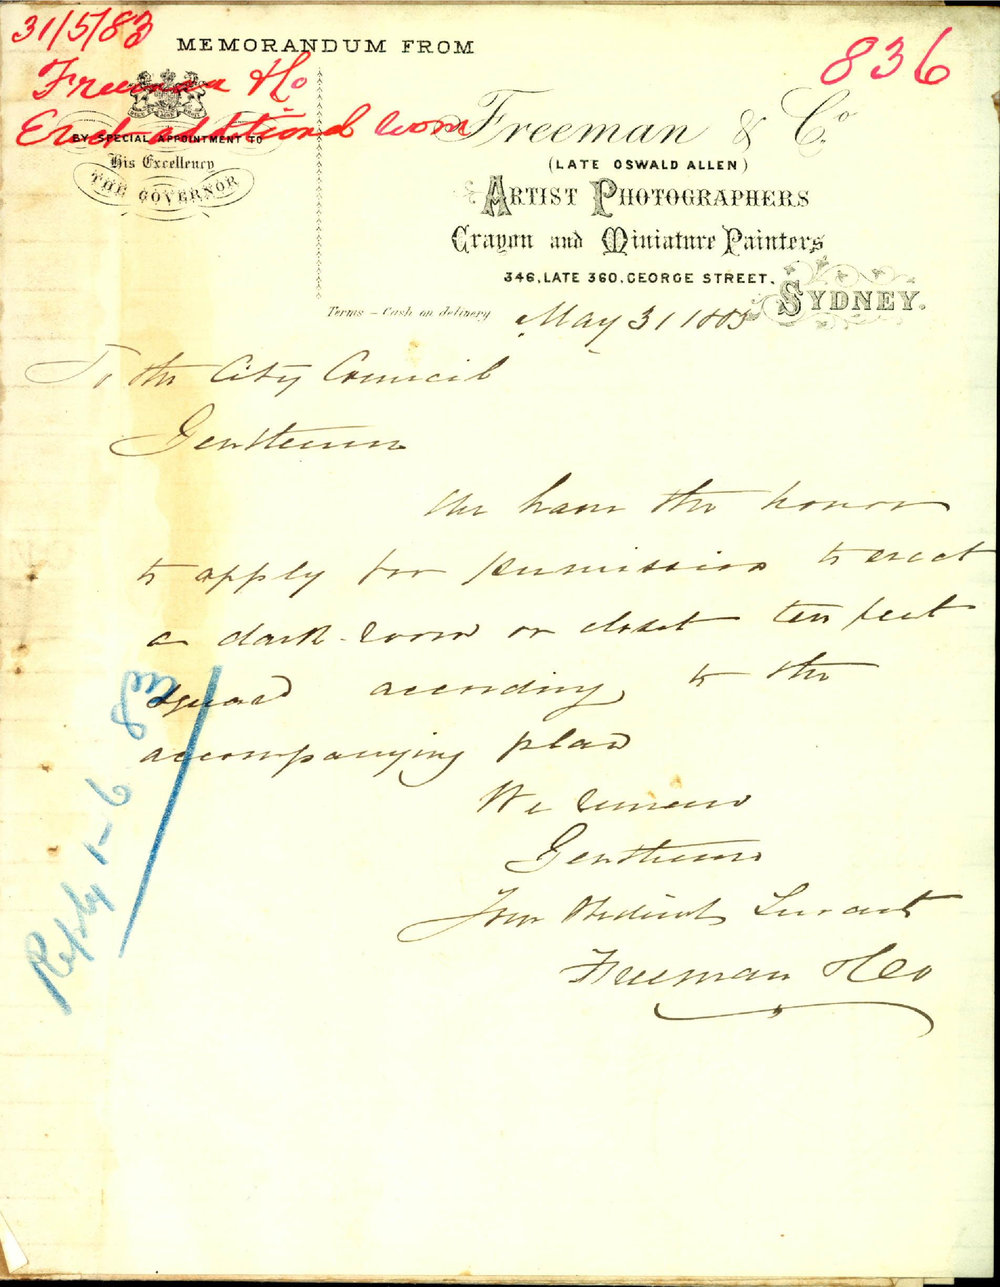 31/5/83
836
MEMORANDUM FROM
Freeman & Co
Erect additional room
BY SPECIAL APPOINTMENT TO
His Excellency
THE GOVERNOR
Freeman & Co.
(LATE OSWALD ALLEN)
ARTIST PHOTOGRAPHERS
Crayon and Miniature Painters
346, LATE 360, GEORGE STREET,
SYDNEY.
Terms – Cash on delivery
May 31 1883
To the City Council
Gentlemen
We have the honor
to apply for permission to erect
a dark-room or closet ten feet
square according to the
accompanying plan
We remain
Gentlemen
Your Obedient Servant
Freeman & Co
Reply 1-6